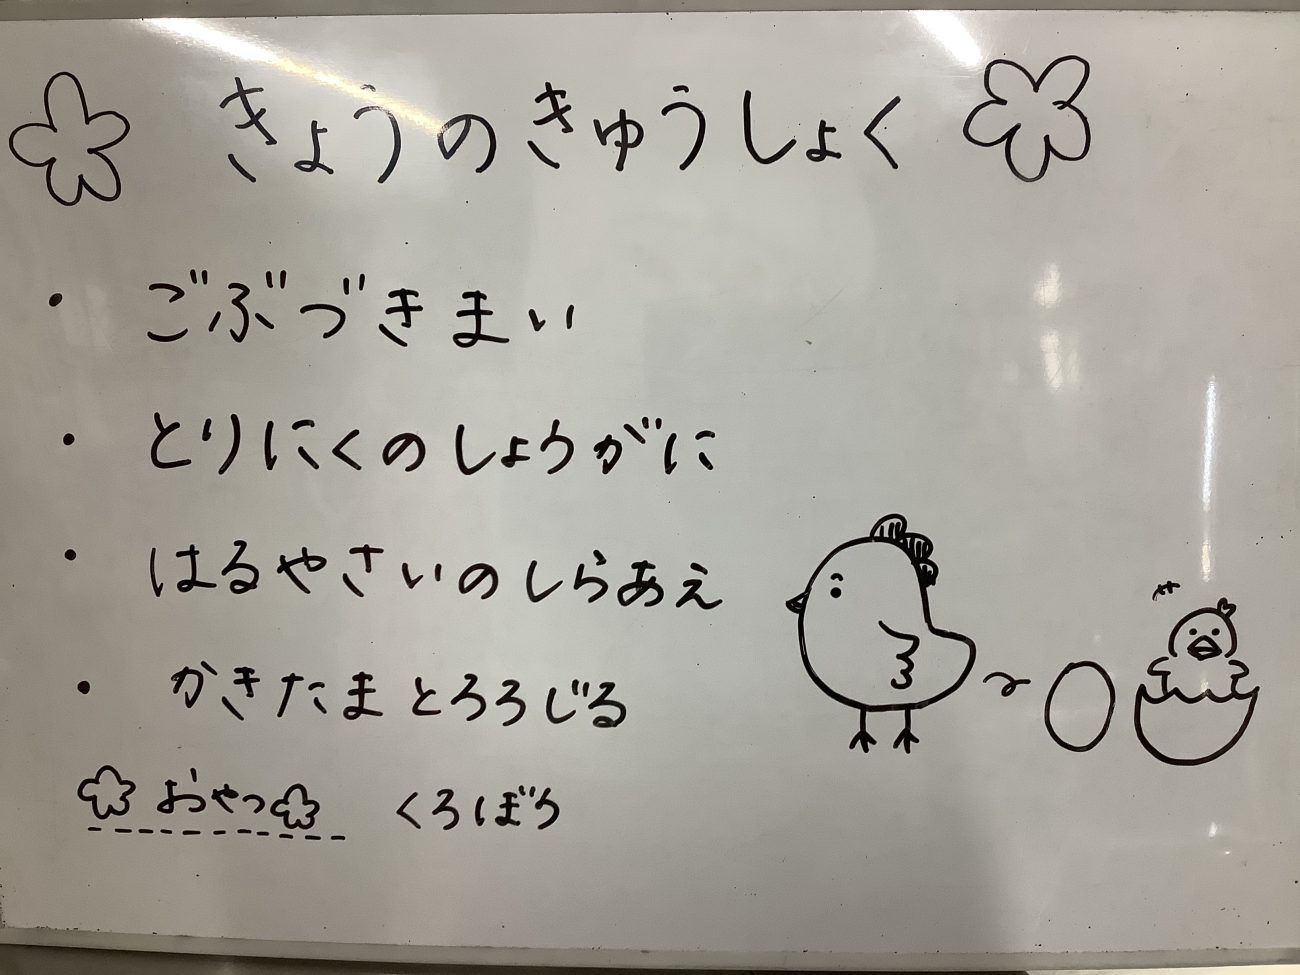 きょうのきゅうしょく
・ごぶづきまい
・とりにくのしょうがに
・はるやさいのしらあえ
・かきたまとろろじる
おやつ くろぼう